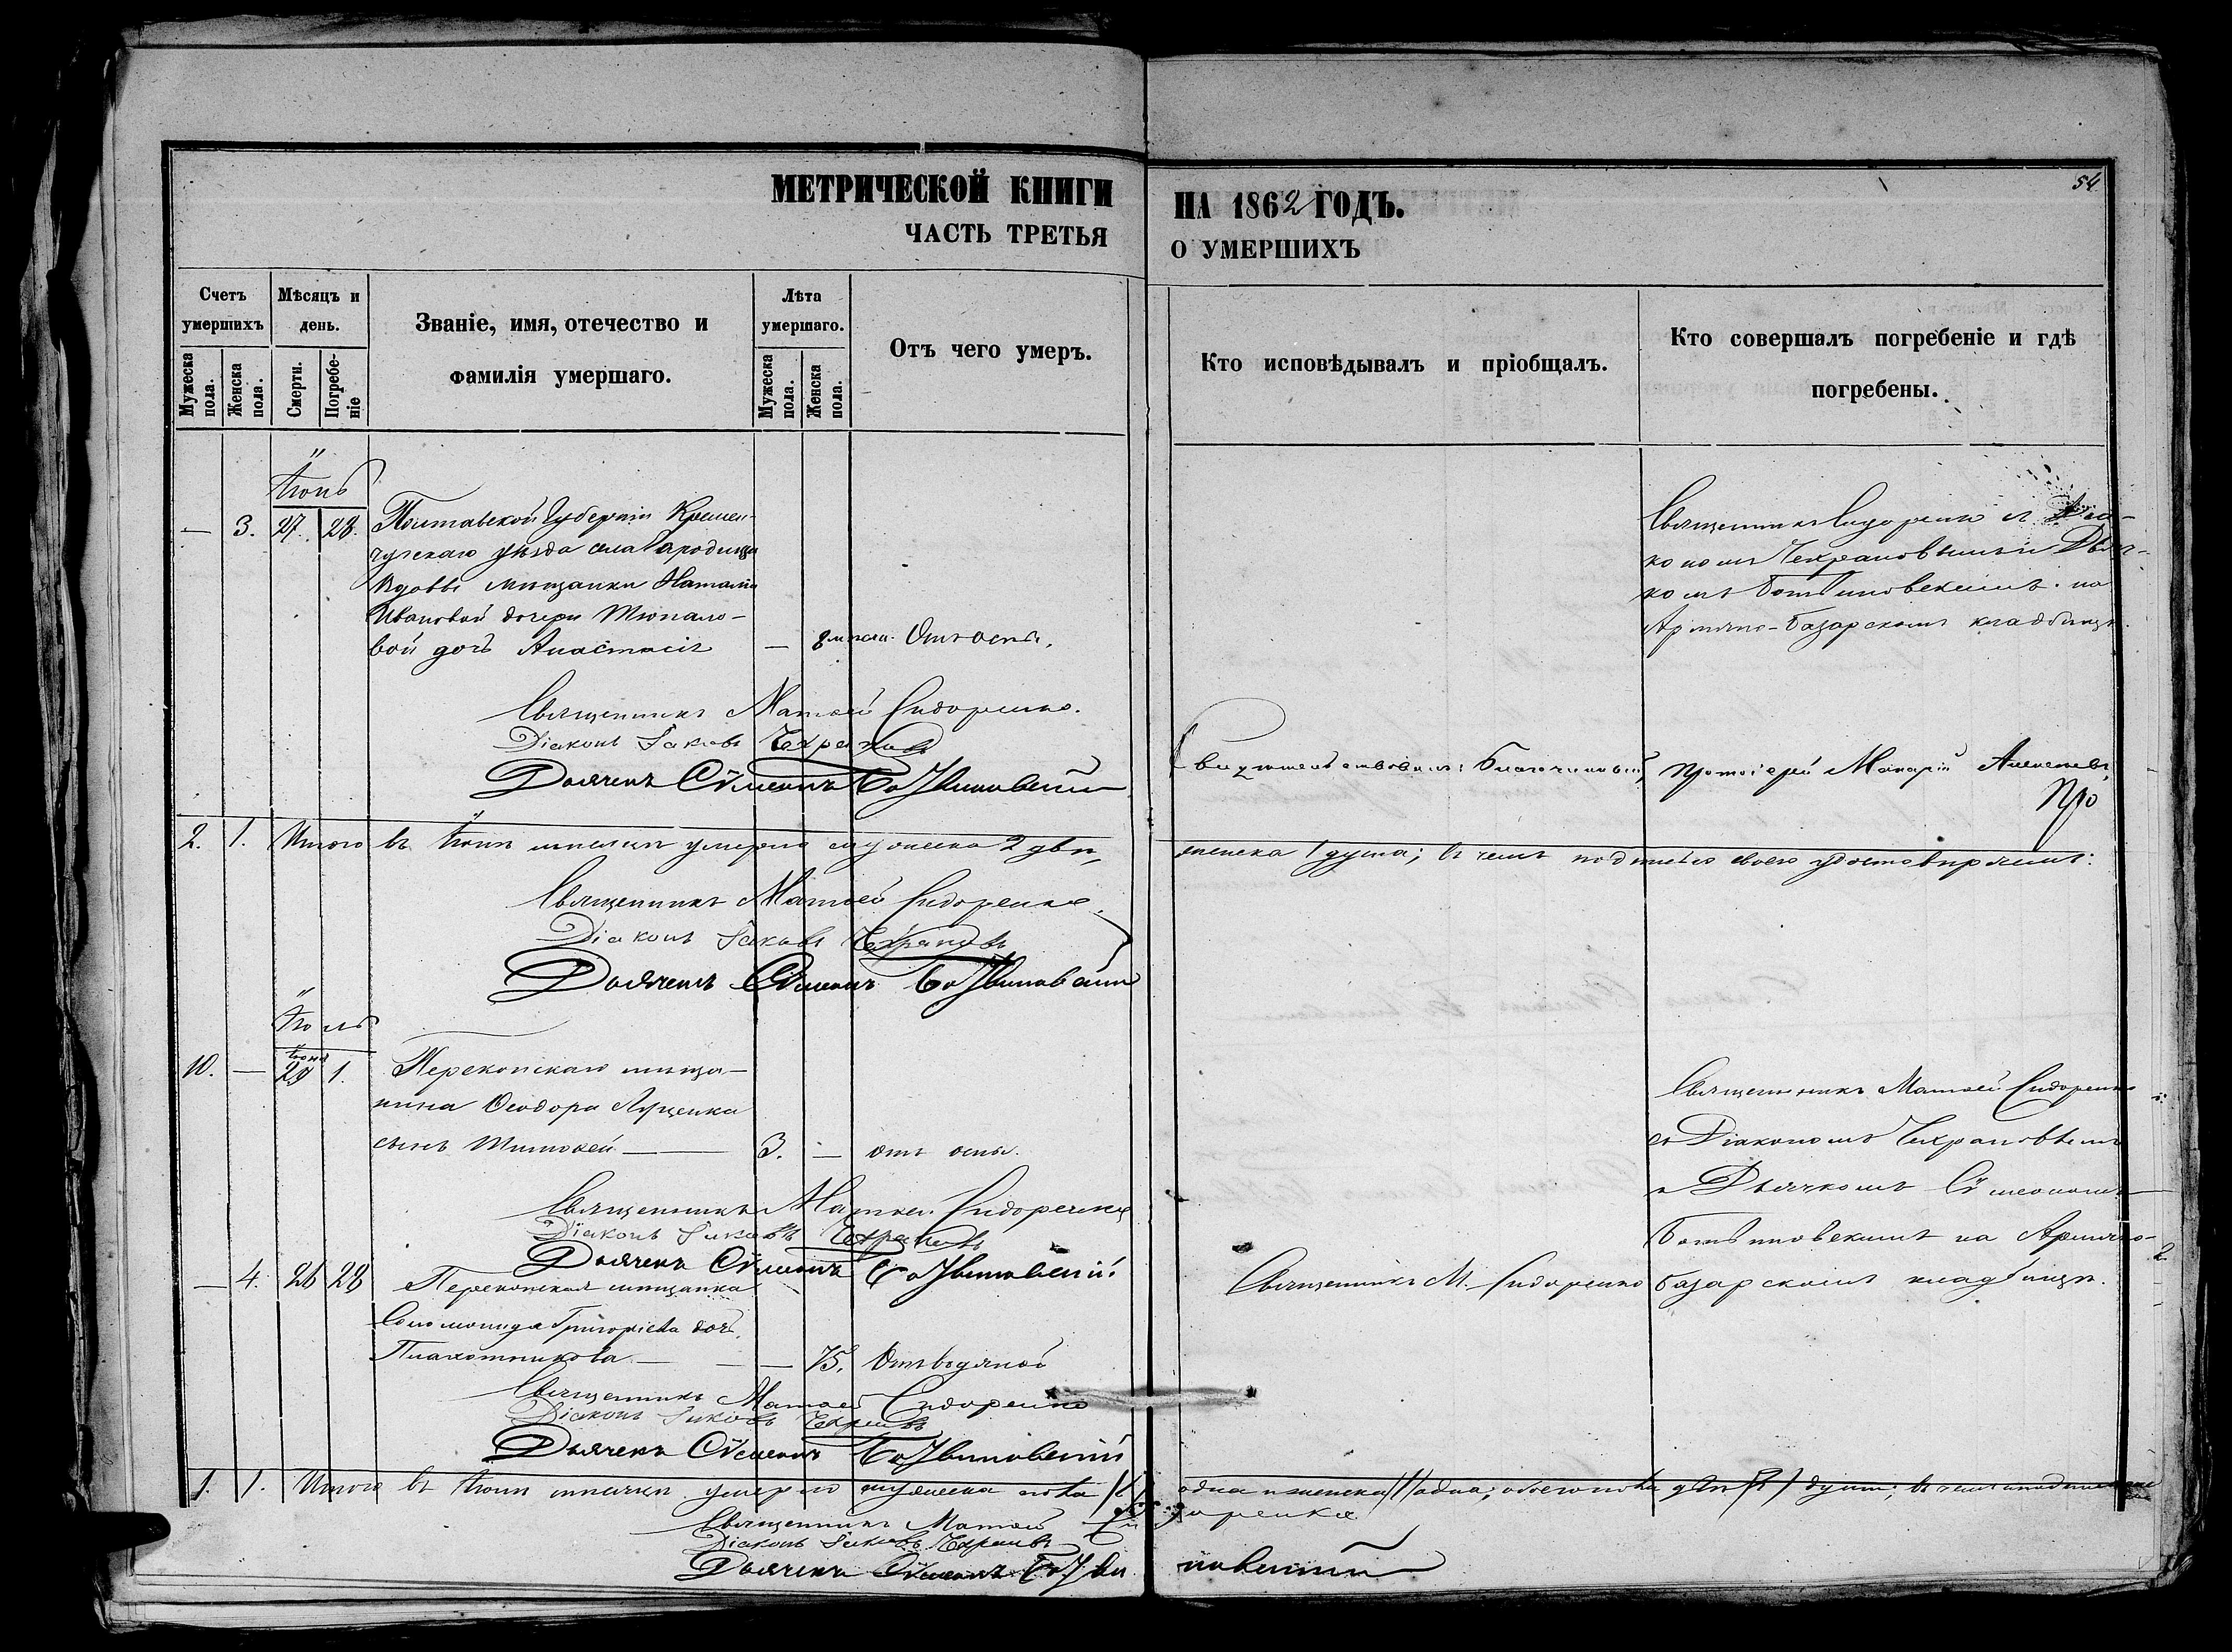 МЕТРИЧЕСКОЙ КНИГИ НА 1862 ГОДЪ.
54
ЧАСТЬ ТРЕТЬЯ О УМЕРШИХЪ
Счетъ умершихъ
Мужеска пола.
Женска пола.
Мѣсяцъ и день.
Смерти.
Погребеніе
Званіе, имя, отечество и
фамилія умершаго.
Лѣта умершаго.
Мужеска пола.
Женска пола.
Отъ чего умеръ.
Кто исповѣдывалъ и пріобщалъ.
Кто совершалъ погребеніе и гдѣ
погребены.
Іюнь
— 3. 27. 28. Полтавской Губерніи Кремен-
чугскаго уѣзда села Городища
вдовы мѣщанки Наталіи
Ивановой дочери Тюпало-
вой дочь Анастасія — 8 мѣсяц. Отъ оспы.
Священникъ Сидоренко съ Діа-
кономъ Чехрановымъ и Дьяч-
комъ Ботвиновскимъ на
Армяно-Базарскомъ кладбищѣ.
Священникъ Матѳей Сидоренко.
Діаконъ Іаковъ Чехрановъ
Дьячекъ Сѵмеонъ Ботвиновскій
Свидѣтельствовалъ: Благочинный, Протоіерей Макарій
2. 1. Итого въ Іюнѣ мѣсяцѣ умерло мужеска 2 двѣ,
женска 1 душа; въ чемъ подписью своею удостовѣряемъ:
Священникъ Матѳей Сидоренко.
Діаконъ Іаковъ Чехрановъ
Дьячекъ Сѵмеонъ Ботвиновскій
Іюль
10. — Іюня 29 1. Перекопскаго мѣща-
нина Ѳеодора Луценка
сынъ Тимоѳей — 3. — отъ оспы.
Священникъ Матѳей Сидоренко
съ Діакономъ Чехрановымъ
и Дьячкомъ Сѵмеономъ
Ботвиновскимъ на Армяно-
Базарскомъ кладбищѣ.
Священникъ Матѳей Сидоренко
Діаконъ Іаковъ Чехрановъ
Дьячекъ Сѵмеонъ Ботвиновскій
— 4. 26 28 Перекопская мѣщанка
Соломонида Григоріева дочь
Плахотникова — — 75. Отъ водяной
Священникъ М. Сидоренко
Священникъ Матѳей Сидоренко
Діаконъ Іаковъ Чехрановъ
Дьячекъ Сѵмеонъ Ботвиновскій
1. 1. Итого въ Іюлѣ мѣсяцѣ умерло мужеска пола /1/ одна и женска /1/ одна; обоего пола двѣ /2/ души; въ чемъ
Священникъ Матѳей Сидоренко
Діаконъ Іаковъ Чехрановъ
Дьячекъ Сѵмеонъ Ботвиновскій